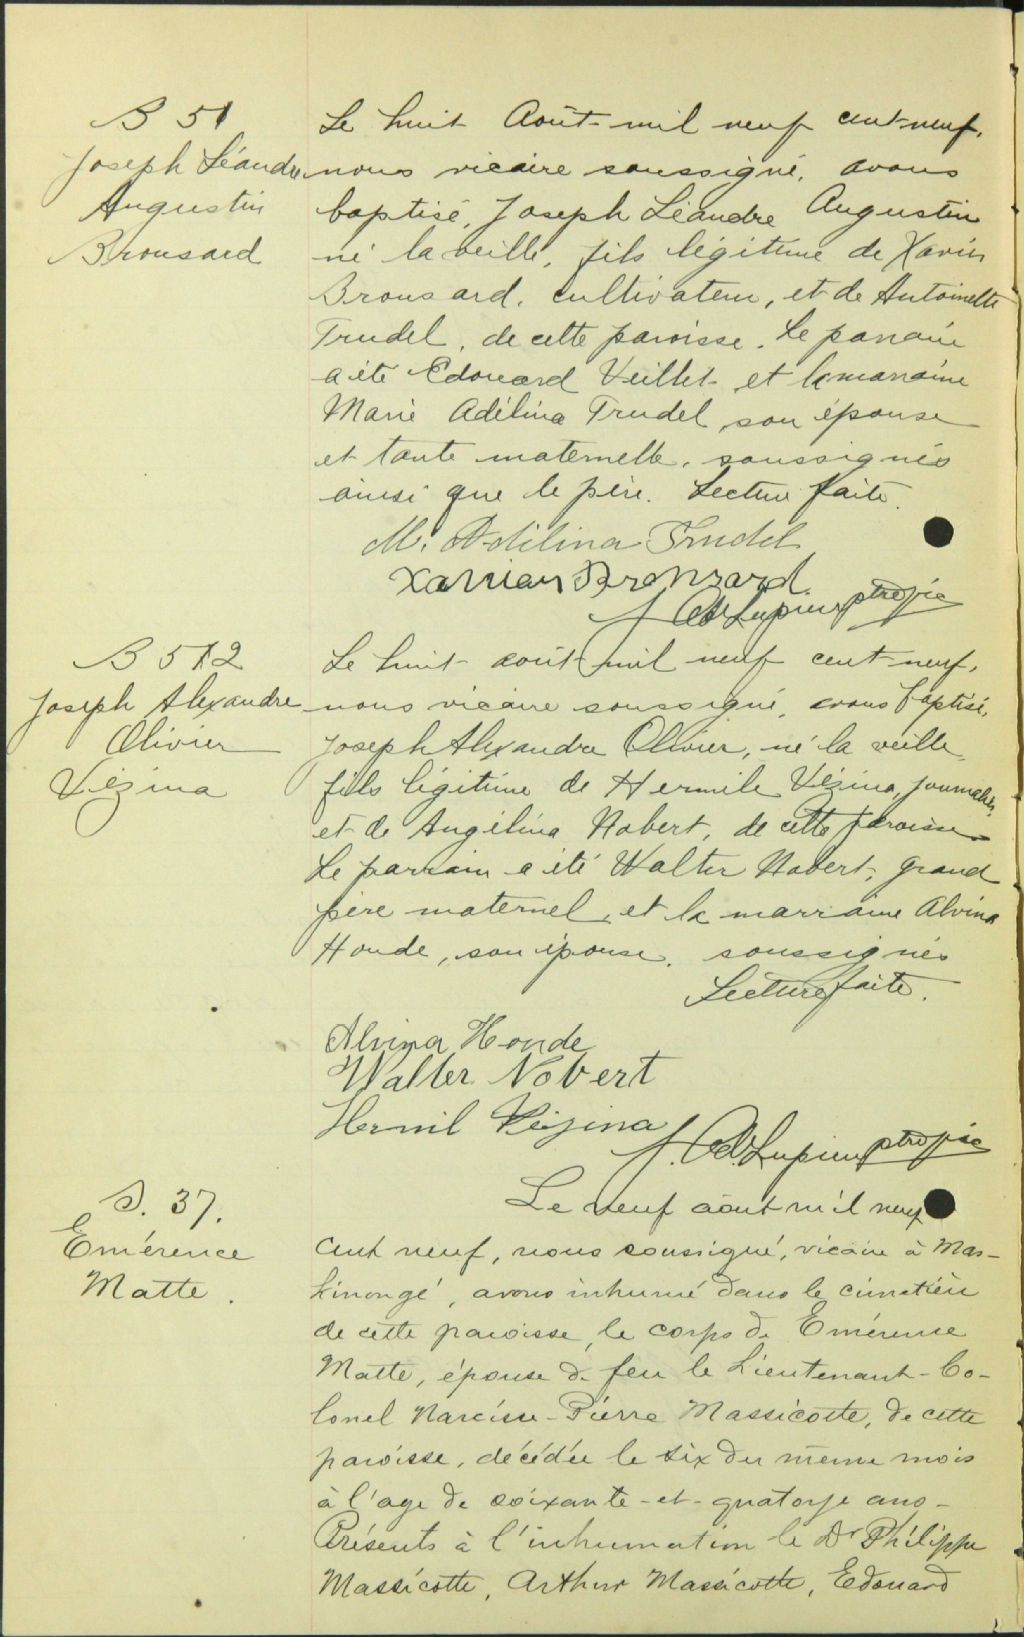 B 51
Joseph Léandre
Augustin
Bronsard
Le huit Août mil neuf cent-neuf,
nous vicaire soussigné, avons
baptisé, Joseph Léandre Augustin
né la veille, fils légitime de Xavier
Bronsard, cultivateur, et de Antoinette
Trudel, de cette paroisse. Le parrain
a été Edouard Veillet et la marraine
Marie Adélina Trudel, son épouse
et tante maternelle, soussignés
ainsi que le père. Lecture faite.
M. Adélina Trudel
Xavier Bronsard
J. Ad. Lupien ptre
B 52
Joseph Alexandre
Olivier
Vézina
Le huit août mil neuf cent-neuf,
nous vicaire soussigné, avons baptisé,
Joseph Alexandre Olivier, né la veille,
fils légitime de Hermile Vézina, journalier,
et de Angélina Nobert, de cette paroisse.
Le parrain a été Walter Nobert, grand
père maternel, et la marraine Alvina
Houde, son épouse, soussignés
Lecture faite.
Alvina Houde
Walter Nobert
Hermil Vézina
J. Ad. Lupien ptre
S. 37.
Emérence
Matte.
Le neuf août mil neuf
cent neuf, nous soussigné, vicaire à Mas-
kinongé, avons inhumé dans le cimetière
de cette paroisse, le corps de Emérence
Matte, épouse de feu le Lieutenant-Co-
lonel Narcisse-Pierre Massicotte, de cette
paroisse, décédée le six du même mois
à l'age de soixante-et-quatorze ans-
Présents à l'inhumation le Dr Philippe
Massicotte, Arthur Massicotte, Edouard